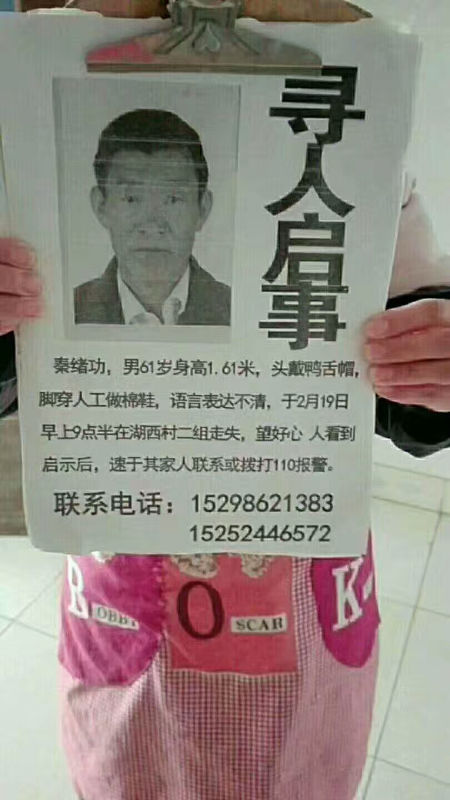 寻人启事
秦绪功，男61岁身高1.61米，头戴鸭舌帽，
脚穿人工做棉鞋，语言表达不清，于2月19日
早上9点半在湖西村二组走失，望好心 人看到
启示后，速于其家人联系或拨打110报警。
联系电话：15298621383
15252446572
R OBBY
O SCAR
K